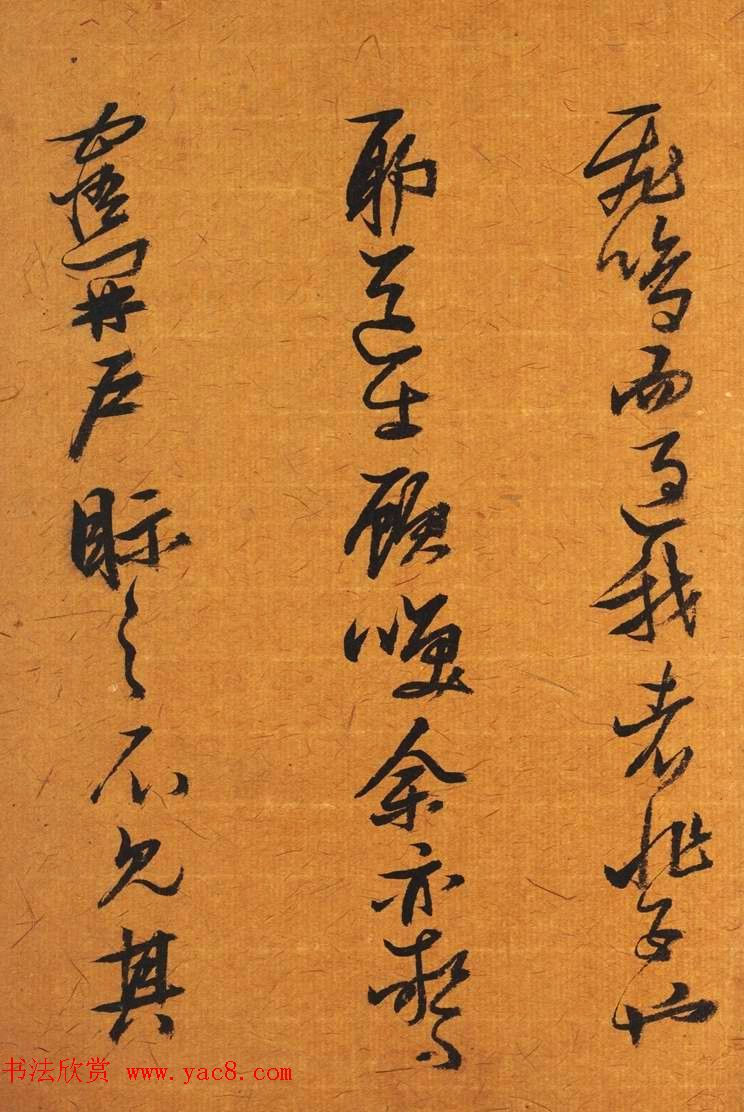 飛鳴而過我者非子也
耶道士顧笑余亦驚
寤開戶眎之不見其
书法欣赏 www.yac8.com